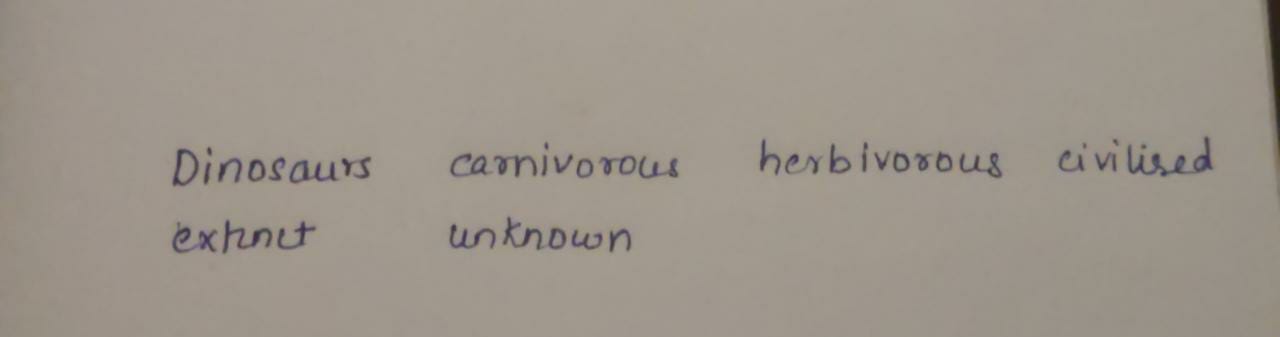 Dinosaurs carnivorous herbivorous civilised
extinct unknown